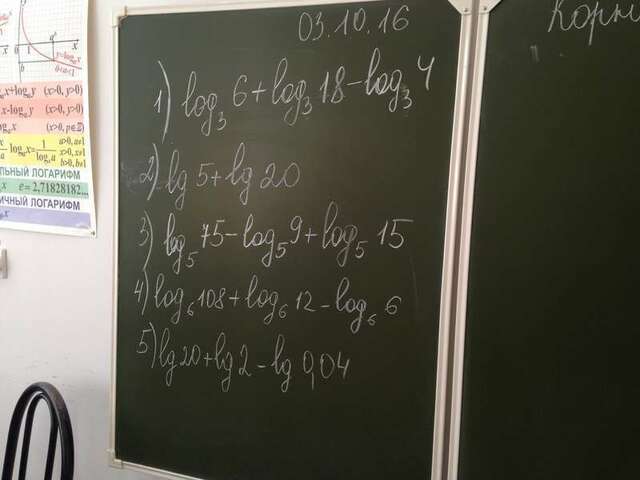 03.10.16
Корн
1) log₃ 6 + log₃ 18 - log₃ 4
2) lg 5 + lg 20
3) log₅ 75 - log₅ 9 + log₅ 15
4) log₆ 108 + log₆ 12 - log₆ 6
5) lg 20 + lg 2 - lg 0,04
y=logₐx
0<a<1
x+logₐy (x>0, y>0)
x-logₐy (x>0, y>0)
(x>0, p∈Z)
logₐx= 1
a>0, a≠1
x>0, x≠1
b>0, b≠1
ЛЬНЫЙ ЛОГАРИФМ
x e = 2,71828182...
ИЧНЫЙ ЛОГАРИФМ